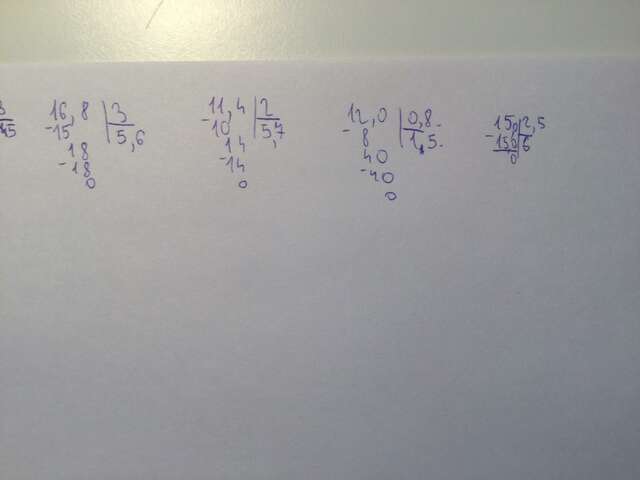 3
45
16,8 3
-15 5,6
18
-18
0
11,4 2
-10 5,7
14
-14
0
12,0 0,8.
-8 1,5.
40
-40
0
15,0 2,5
-15,0 6
0